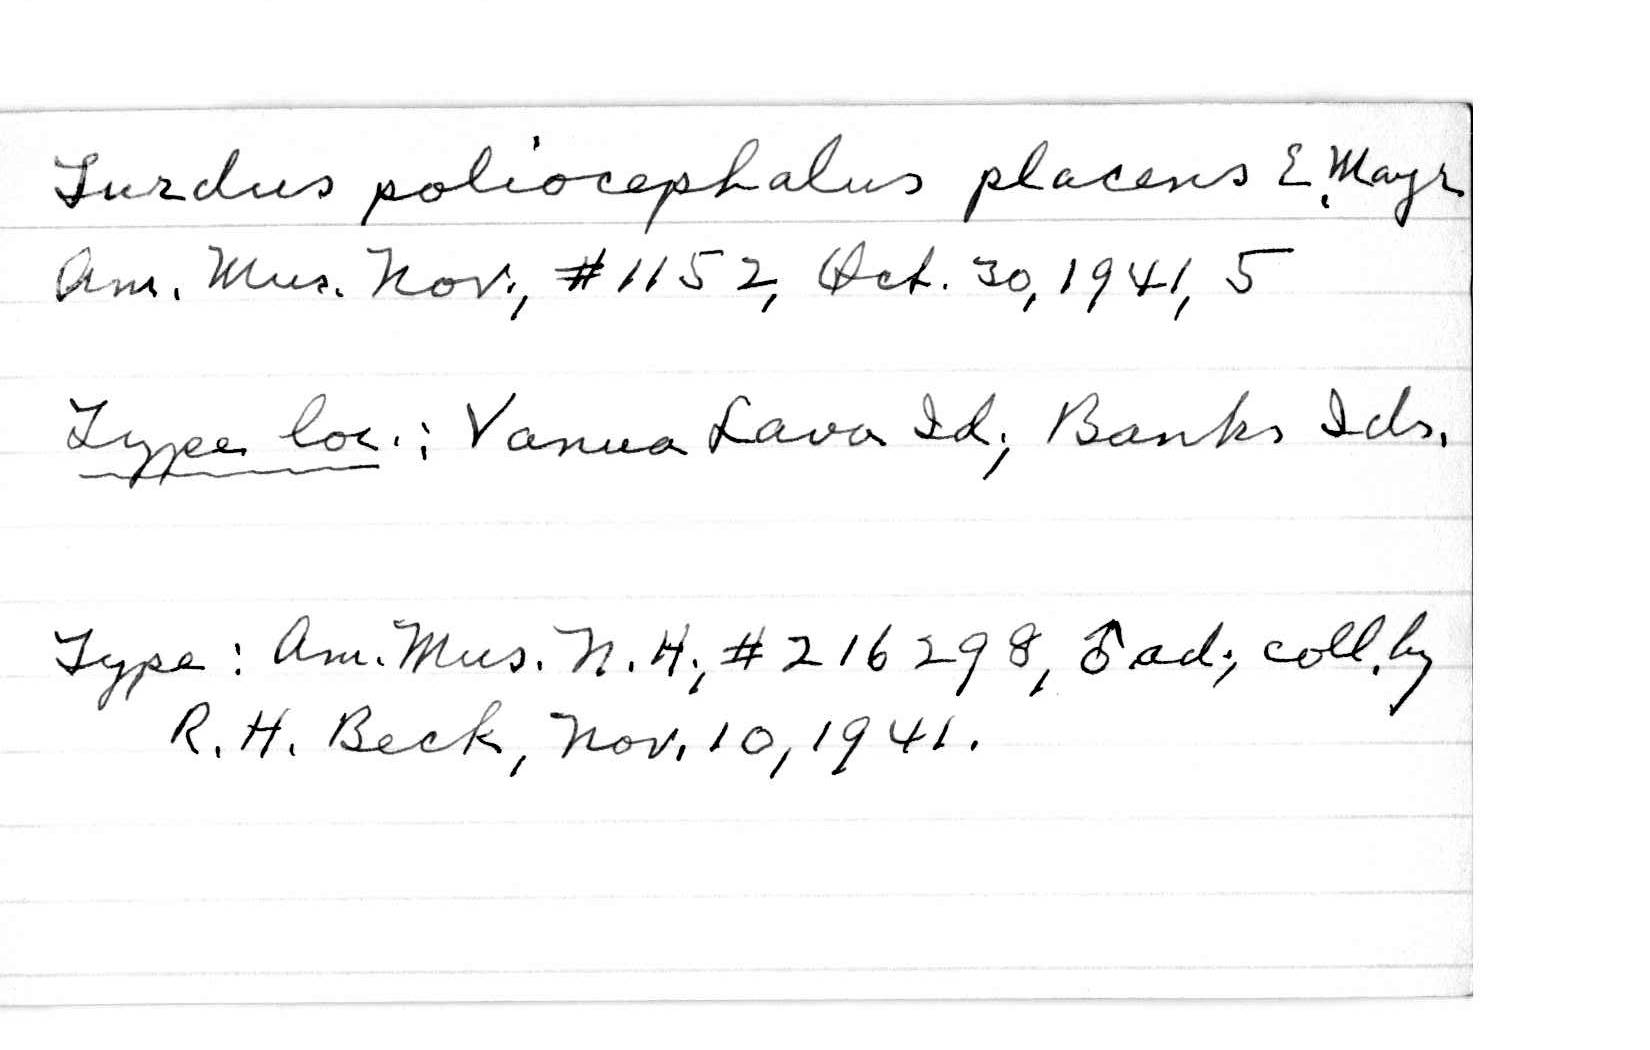 Turdus poliocephalus placens E. Mayr
Am. Mus. Nov., #1152, Oct. 30, 1941, 5
Type loc.: Vanua Lava Id., Banks Ids.
Type: Am. Mus. N. H., #216298, ♂ ad., coll. by
R. H. Beck, Nov. 10, 1941.